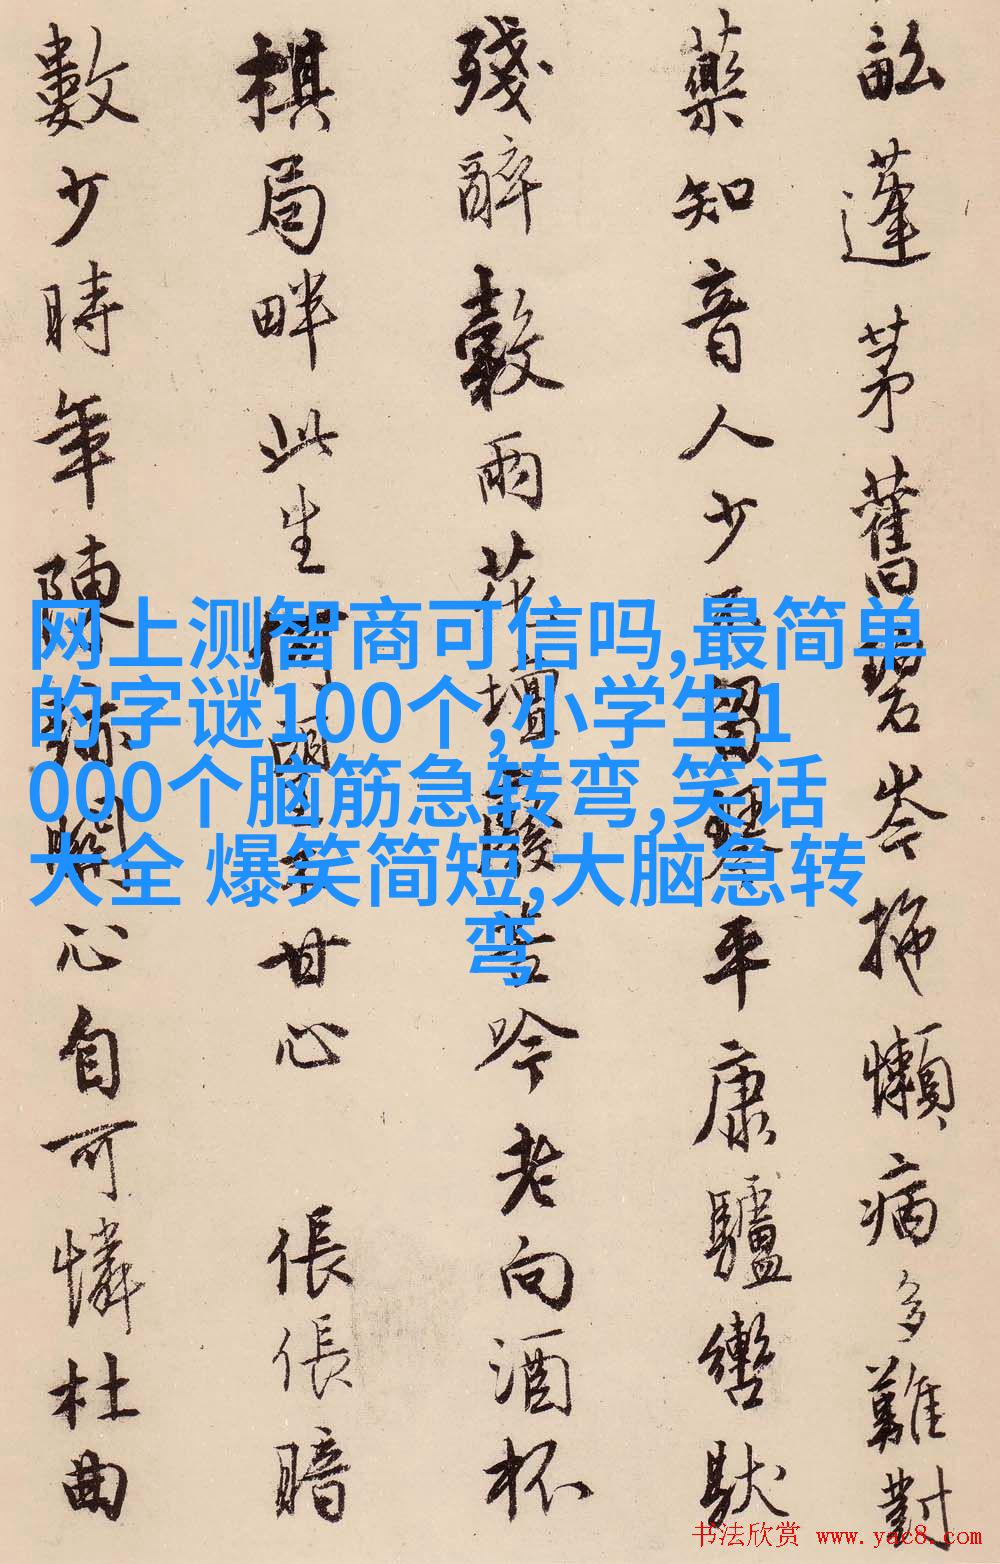 蓬茅舊碧岑拖懶病多難對
藥知音人少留琴平康驢轡馱
殘醉穀雨花壇苦吟老向酒杯
棋局畔此生甘心 倀倀暗
數少時年陳跡關心自可憐杜曲
网上测智商可信吗,最简单
的字谜100个,小学生1
000个脑筋急转弯,笑话
大全 爆笑简短,大脑急转
弯
书法欣赏 www.yac8.com